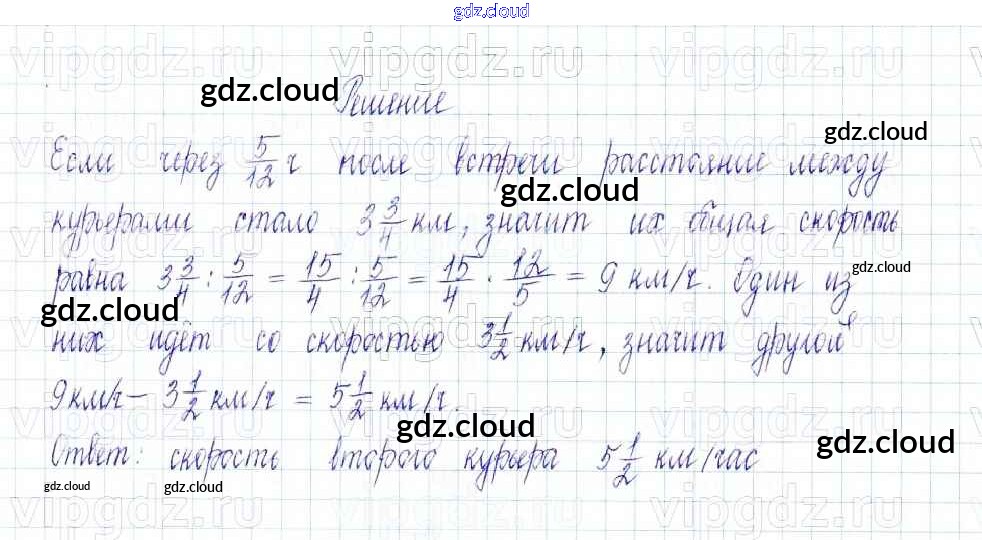 gdz.cloud
vipgdz.ru vipgdz.ru vipgdz.ru
gdz.cloud Решение
gdz.cloud
Если через 5/12 ч после встречи расстояние между
gdz.cloud
курьерами стало 3 3/4 км, значит их общая скорость
равна 3 3/4 : 5/12 = 15/4 : 5/12 = 15/4 · 12/5 = 9 км/ч. Один из
gdz.cloud
gdz.cloud
них идёт со скоростью 3 1/2 км/ч, значит другой
9 км/ч – 3 1/2 км/ч = 5 1/2 км/ч.
gdz.cloud
gdz.cloud
Ответ: скорость второго курьера 5 1/2 км/час
gdz.cloud gdz.cloud
vipgdz.ru vipgdz.ru vipgdz.ru